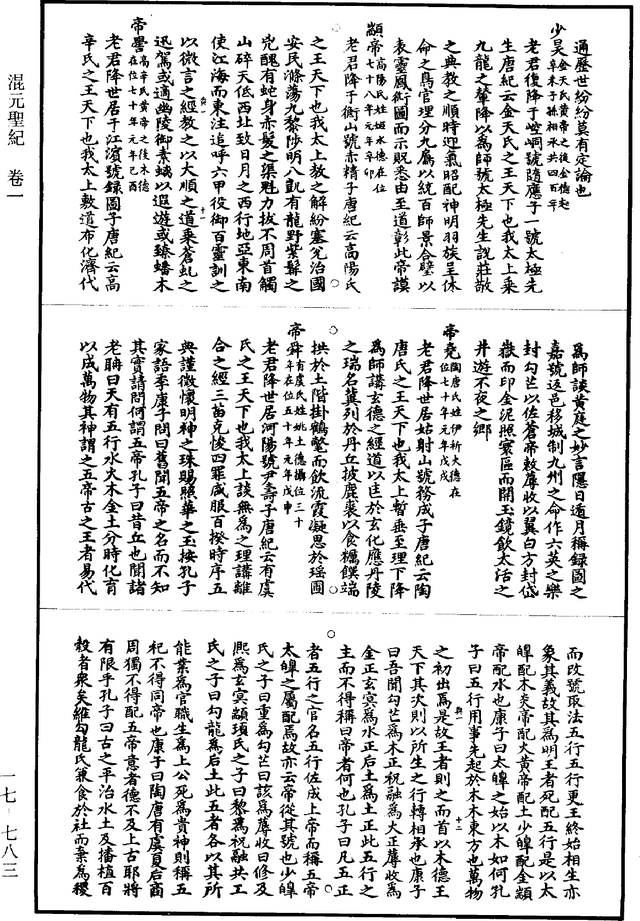 混元聖紀 卷一
一七—七八三
通歷世紛紛莫有定論也
少昊金天氏黃帝之後金德起阜木子孫相承共四百年
老君復降于崆峒號隨應子一號太極先
生唐紀云金天氏之王天下也我太上乘
九龍之輦降以為師號太極先生說莊敬
之典教之順時迎氣昭配神明羽族呈休
命之鳥官理分九扈以統百師景合璧以
表靈鳳銜圖而示貺悉由至道彰此帝謨
顓帝高陽氏姓姬水德在位七十八年元年辛卯
老君降于衡山號赤精子唐紀云高陽氏
之王天下也我太上教之解紛塞兌治國
安民滌蕩九黎陟明八凱有龍野紫髯之
兇醜有蛇身赤髮之桀魁力拔不周首觸
山碎天低西北致日月之西行地亞東南
使江海而東注追呼六甲役御百靈訓之
以微言之經教之以大順之道乘蒼虬之
迅駕或適幽陵御素螭以遐遊或臻蟠木
帝嚳高辛氏黃帝之後木德在位七十年元年己酉
老君降世居于江濱號錄圖子唐紀云高
辛氏之王天下也我太上敷道布化濟代
為師談黃庭之妙言隱日遁月稱錄圖之
嘉號返邑移城制九州之命作六英之樂
封勾芒以佐蒼帝敕蓐收以翼白方封岱
嶽而印金泥照寰區而開玉鏡飲太活之
井遊不夜之鄉
帝堯陶唐氏姓伊祈火德在位七十年元年戊戌
老君降世居姑射山號務成子唐紀云陶
唐氏之王天下也我太上暫垂至理下降
為師講玄德之經道以匡於玄化應丹陵
之瑞名蓂列於丹丘披鹿裘以食糲饌端
拱於土階掛鶴氅而飲流霞凝思於瑤圃
帝舜有虞氏姓姚土德攝位三十年在位五十年元年戊申
老君降世居河陽號尹壽子唐紀云有虞
氏之王天下也我太上談無為之理講離
合之經三苗克悛四罪咸服百揆時序五
典謹徽懷明神之珠賜照華之玉按孔子
家語季康子問曰舊聞五帝之名而不知
其實請問何謂五帝孔子曰昔丘也聞諸
老聃曰天有五行水火木金土分時化育
以成萬物其神謂之五帝古之王者易代
而改號取法五行五行更王終始相生亦
象其義故其為明王者死配五行是以太
皥配木炎帝配火黃帝配土少皥配金顓
帝配水也康子曰太皥之始以木如何孔
子曰五行用事先起於木木東方也萬物
之初出焉是故王者則之而首以木德王
天下其次則以所生之行轉相承也康子
曰吾聞勾芒為木正祝融為火正蓐收為
金正玄冥為水正后土為土正此五行之
主而不得稱曰帝者何也孔子曰凡五正
者五行之官名五行佐成上帝而稱五帝
太皥之屬配焉故亦云帝從其號也少皥
氏之子曰重為勾芒曰該為蓐收曰修及
熙為玄冥顓頊氏之子曰黎為祝融共工
氏之子曰勾龍為后土此五者各以其所
能業為官職生為上公死為貴神則稱五
祀不得同帝也康子曰陶唐有虞夏后商
周獨不得配五帝意者德不及上古耶將
有限乎孔子曰古之平治水土及播植百
穀者衆矣唯勾龍氏兼食於社而棄為稷